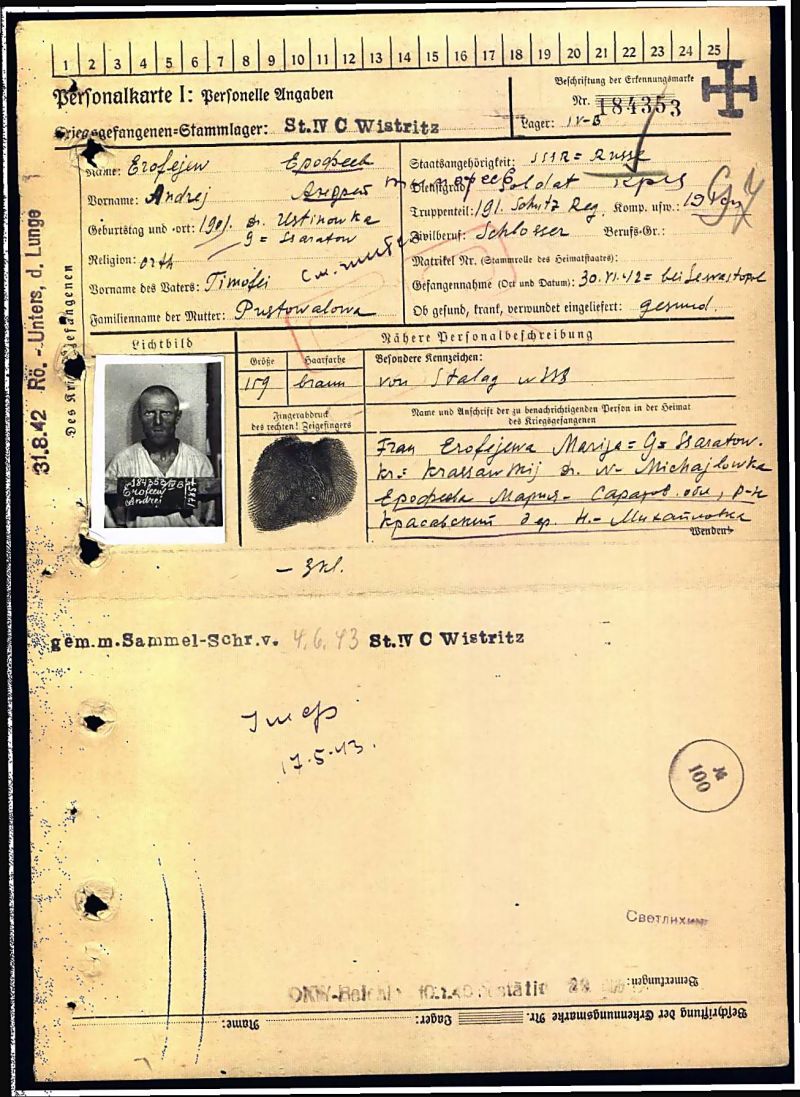 1 2 3 4 5 6 7 8 9 10 11 12 13 14 15 16 17 18 19 20 21 22 23 24 25
Personalkarte I: Personelle Angaben
Beschriftung der Erkennungsmarke
Nr. 184353
Kriegsgefangenen-Stammlager: St.IV C Wistritz
Lager: IV-B
Des Kriegsgefangenen
Name: Erofejew Ерофеев
Vorname: Andrej Андрей Тимофеев
Geburtstag und -ort: 1901. Ustinowka
G= Ssaratow
Religion: orth
Vorname des Vaters: Timofei
Familienname der Mutter: Pustowalowa
Staatsangehörigkeit: SSSR= Russe
Dienstgrad: Soldat
Truppenteil: 191. Schütz Reg. Komp. usw.:
Zivilberuf: Schlosser Berufs-Gr.:
Matrikel Nr. (Stammrolle des Heimatstaates):
Gefangennahme (Ort und Datum): 30.VI.42= bei Sewastopol
Ob gesund, krank, verwundet eingeliefert: gesund.
31.8.42 Rö.-Unters. d. Lunge
Lichtbild
Nähere Personalbeschreibung
Größe Haarfarbe Besondere Kennzeichen:
159 braun von Stalag
Fingerabdruck
des rechten! Zeigefingers
Name und Anschrift der zu benachrichtigenden Person in der Heimat
des Kriegsgefangenen
Frau Erofejewa Marija= G= Ssaratow.
kr= Krassawskij N- Michajlowka
Ерофеева Мария- Саратов. обл, р-н
Красавский дер. Н.- Михайловка
Wenden!
184353 IV B
Erofeew
Andrei
gem.m.Sammel-Schr.v. 4.6.43 St.IV C Wistritz
17.5.43.
100
Bemerkungen:
Beschriftung der Erkennungsmarke Nr. Lager: Name: